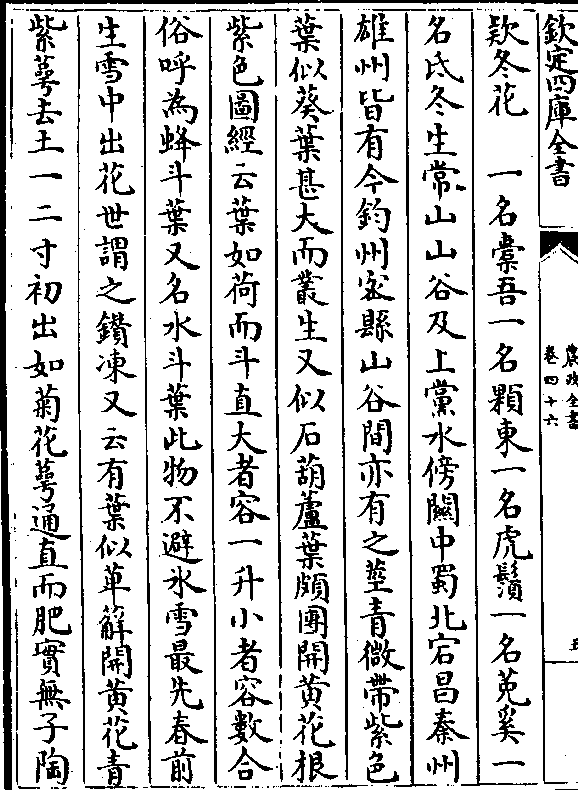 欽定四庫全書
農政全書
卷四十六
五
欵冬花　一名橐吾一名顆東一名虎鬚一名莵奚一
名氐冬生常山山谷及上黨水傍關中蜀北宕昌秦州
雄州皆有今鈞州密縣山谷間亦有之莖青微帶紫色
葉似葵葉甚大而叢生又似石葫蘆葉頗團開黄花根
紫色圖經云葉如荷而斗直大者容一升小者容數合
俗呼為蜂斗葉又名水斗葉此物不避氷雪最先春前
生雪中出花世謂之鑽凍又云有葉似萆薢開黄花青
紫萼去土一二寸初出如菊花萼通直而肥實無子陶